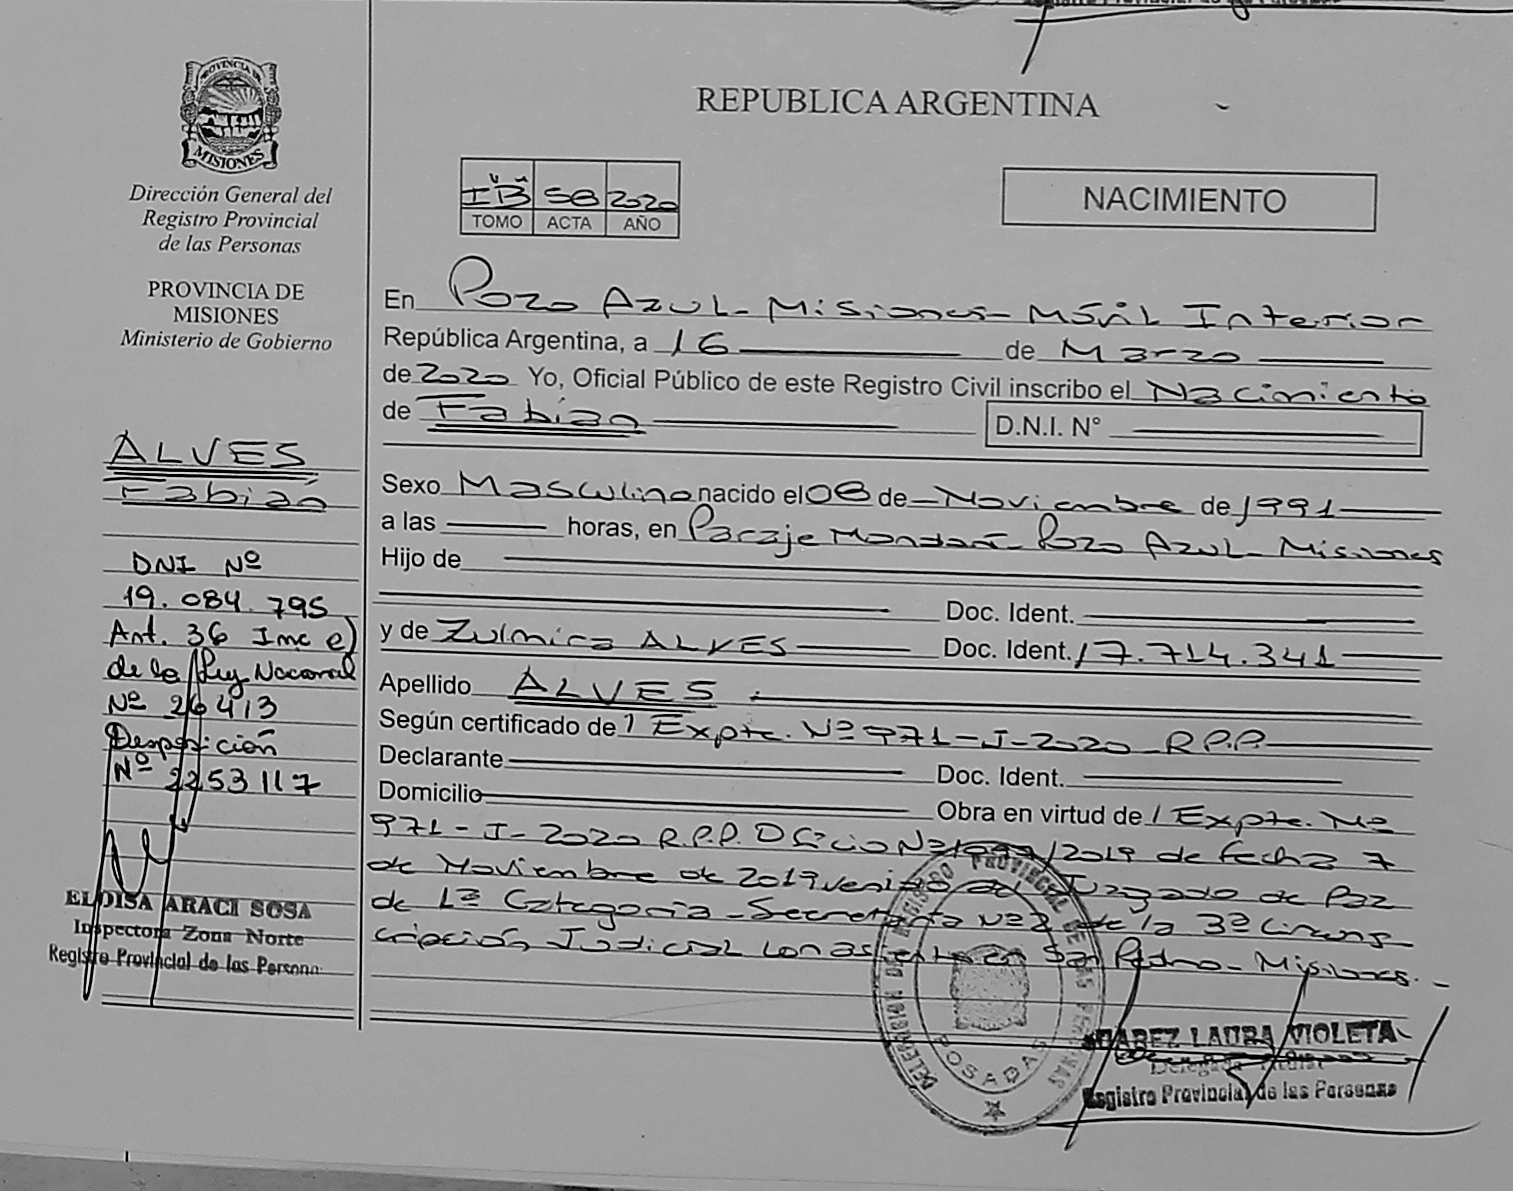 PROVINCIA DE
MISIONES
Dirección General del
Registro Provincial
de las Personas
PROVINCIA DE
MISIONES
Ministerio de Gobierno
ALVES
Fabián
DNI Nº
19.084.795
Ant. 36 Inc e)
de la Ley Nacional
Nº 26413
Disposición
Nº 2253117
ELOISA ARACI SOSA
Inspectora Zona Norte
Registro Provincial de las Persona
REPUBLICA ARGENTINA
2020
TOMO ACTA AÑO
NACIMIENTO
En Pozo Azul - Misiones - Móvil Interior
República Argentina, a 16 de Marzo
de 2020 Yo, Oficial Público de este Registro Civil inscribo el Nacimiento
de Fabián D.N.I. N°
Sexo Masculino nacido el 08 de Noviembre de 1991
a las horas, en Paraje Mondorí - Pozo Azul - Misiones
Hijo de
Doc. Ident.
y de Zulmira ALVES Doc. Ident. 17.714.341
Apellido ALVES.
Según certificado de 1 Expte. Nº 971-J-2020 R.P.P.
Declarante Doc. Ident.
Domicilio Obra en virtud de 1 Expte. Nº
971-J-2020 R.P.P. Oficio Nº /2019 de fecha 7
de Noviembre de 2019 venido del Juzgado de Paz
de 1ª Categoría - Secretaría Nº 2 de la 3ª Circuns
cripción Judicial con asiento en San Pedro - Misiones. -
PROVINCIAL DE LAS PERSONAS
POSADAS
SUAREZ LAURA VIOLETA
Delegada Titular
Registro Provincial de las Personas